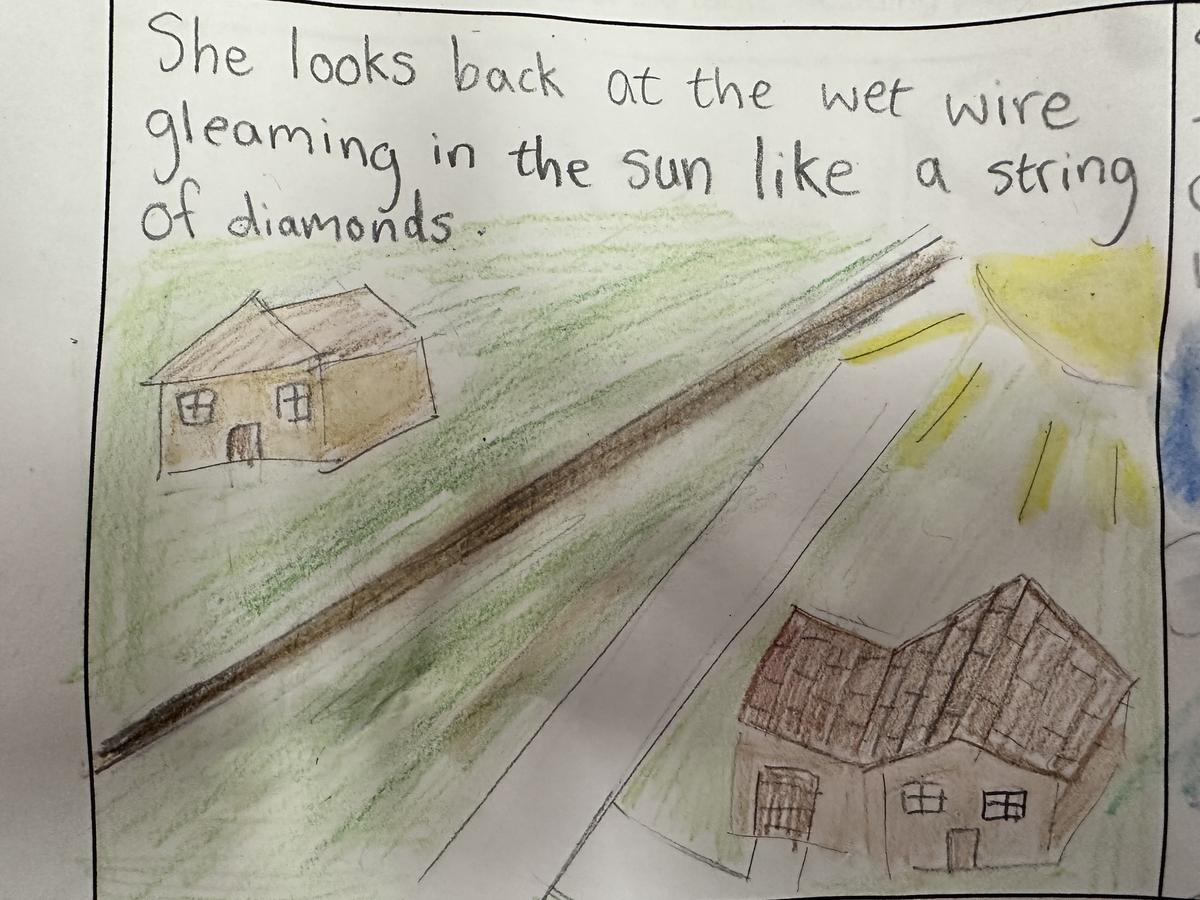 She looks back at the wet wire
gleaming in the sun like a string
of diamonds.